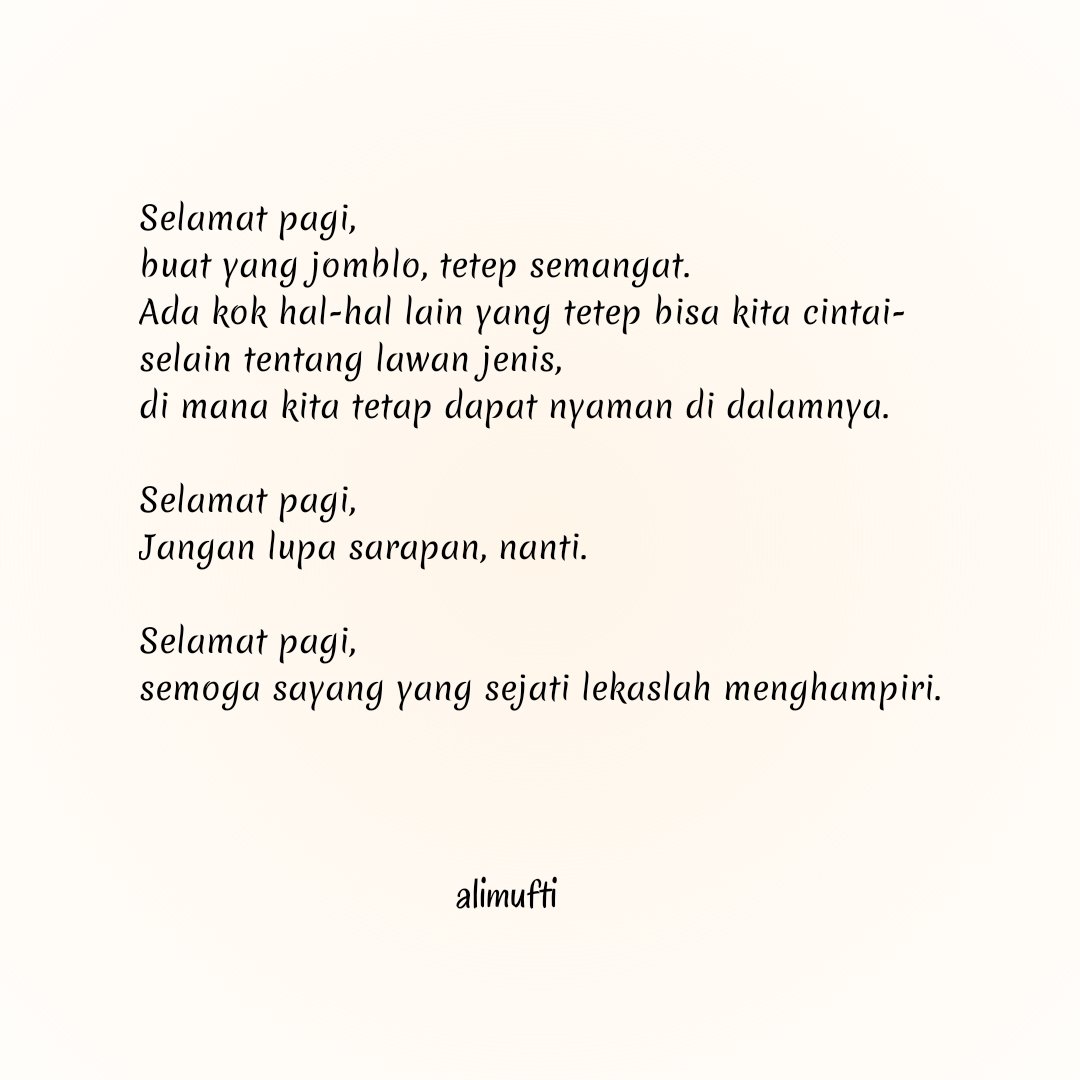 Selamat pagi,
buat yang jomblo, tetep semangat.
Ada kok hal-hal lain yang tetep bisa kita cintai-
selain tentang lawan jenis,
di mana kita tetap dapat nyaman di dalamnya.
Selamat pagi,
Jangan lupa sarapan, nanti.
Selamat pagi,
semoga sayang yang sejati lekaslah menghampiri.
alimufti